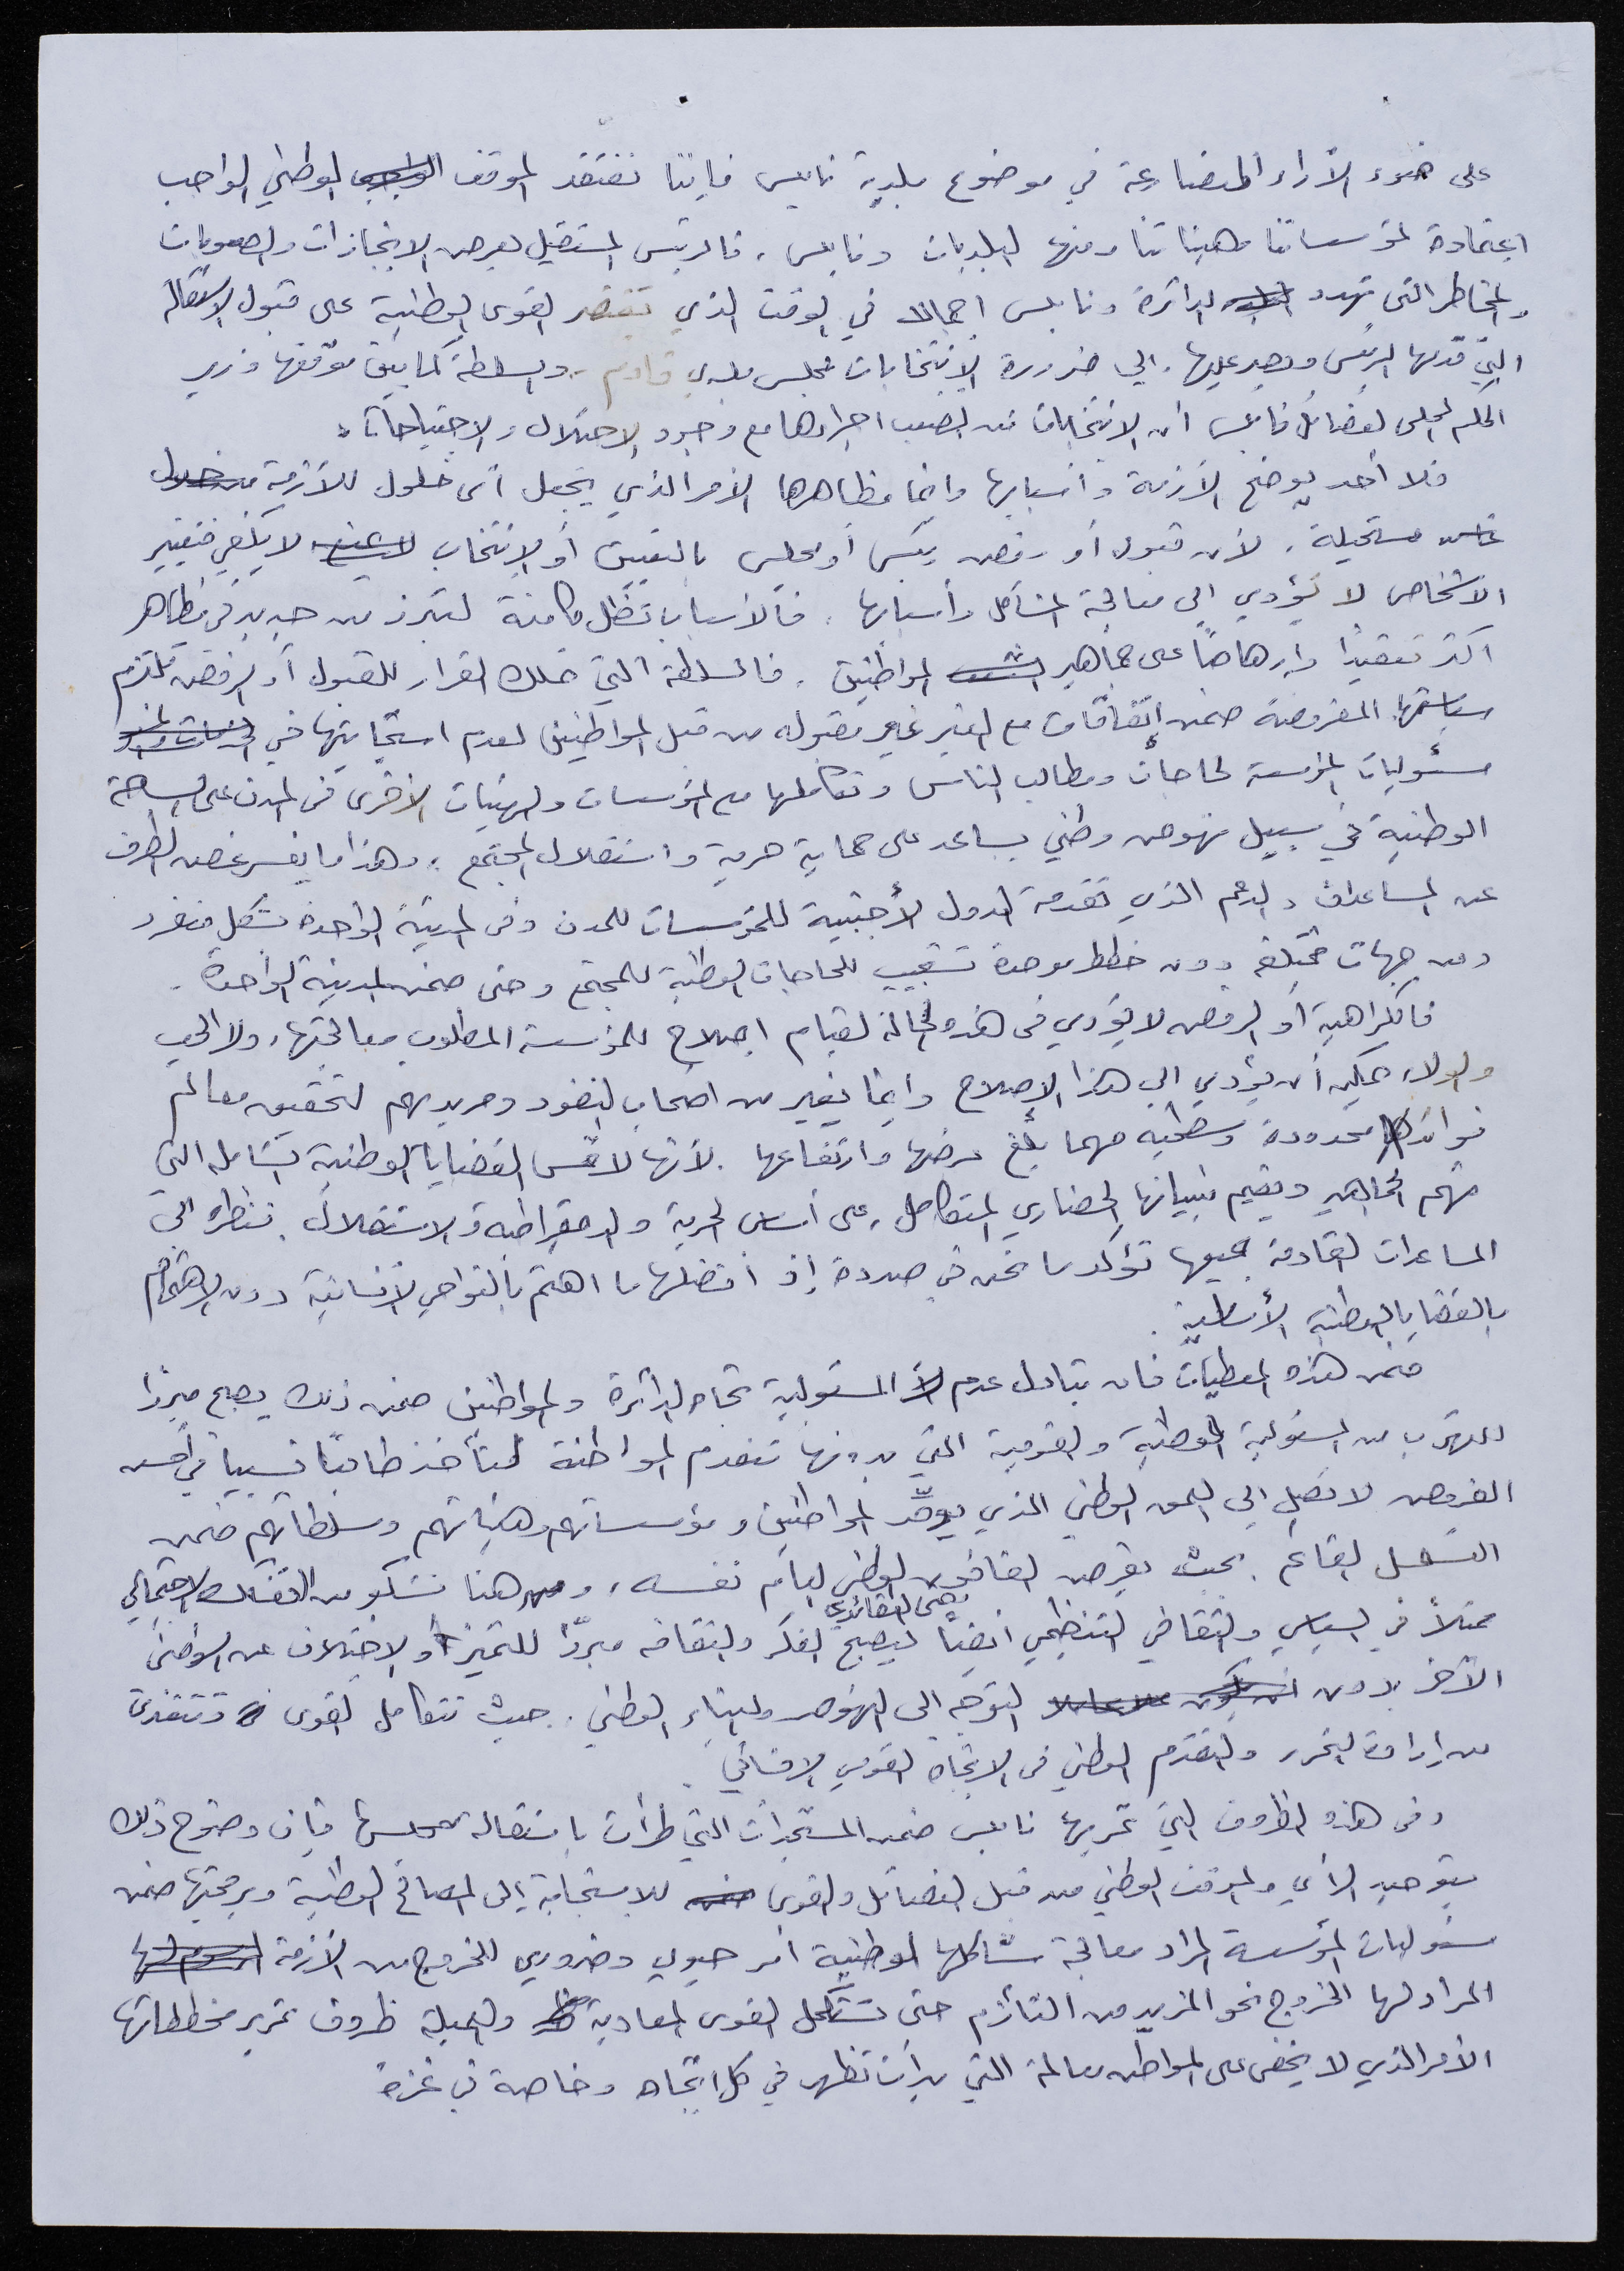 على ضوء الآراء المتضاربة في موضوع بلدية نابلس فإننا نفتقد الموقف الوطني الواجب
اعتماده لمؤسساتنا وهيئاتنا ومنها البلديات ونابلس. فالرئيس المستقيل يعرض الانجازات والصعوبات
والمخاطر التي تهدد الدائرة ونابلس اجمالا في الوقت الذي تفتقر القوى الوطنية على قبول الاستقالة
التي قدمها الرئيس ويصر عليها. الى ضرورة الانتخابات لمجلس بلدي قادم. والسلطة كما يبين موقفها وزير
الحكم المحلي لفصائل نابلس أن الانتخابات من الصعب اجراءها مع وجود الاحتلال والاجتياحات.
فلا أحد يوضح الأزمة وأسبابها وانما مظاهرها الأمر الذي يجعل أي حلول للأزمة
مستحيلة. لأن قبول أو رفض رئيس أو مجلس بالتعيين أو الانتخاب لا يكفي فتغيير
الأشخاص لا يؤدي الى معالجة المشاكل وأسبابها. فالأسباب تظل كامنة لتبرز من جديد في مظاهر
اكثر تعقيدا وارهاصا على جماهير المواطنين. فالسلطة التي تملك القرار للقبول أو الرفض تلتزم
سياستها المفروضة ضمن اتفاقات مع الغير غير مقبوله من قبل المواطنين لعدم استجابتها في
مسئوليات المؤسسة لحاجات ومطالب الناس وتكاملها مع المؤسسات والهيئات الأخرى في المدن على الساحة
الوطنية في سبيل نهوض وطني يساعد على حماية حرية واستقلال المجتمع. وهذا ما يفسر غض الطرف
عن المساعدات والدعم الذي تقدمة الدول الأجنبية للمؤسسات للمدن وفي المدينة الواحدة بشكل منفرد
ومن جهات مختلفة دون خطط موحدة تستجيب للحاجات الوطنية للمجتمع وحتى ضمن المدينة الواحدة.
فالكراهية أو الرفض لا يؤدي في هذه الحالة لقيام اصلاح للمؤسسة المطلوب معالجتها، ولا الحب
والولاء يمكن أن يؤدي الى هذا الإصلاح وانما يغير من اصحاب النفوذ ومريديهم لتحقيق معالم
فوائدها محدودة وسطحية مهما بلغ عرضها وارتفاعها. لأنها لا تمس القضايا الوطنية الشامله التي
تهم الجماهير وتقيم بنيانها الحضاري المتكامل على أساس الحرية والديمقراطية والاستقلال. فنظره الى
المساعدات القادمة جميعها تؤكد ما نحن في صدده إذ أفضلها ما اهتم بالنواحي الانسانية دون الاهتمام
بالقضايا الوطنية الأساسية.
ضمن هذه المعطيات فان تبادل عدم المسئولية تجاه الدائرة والمواطنين ضمن ذلك يصبح مبررا
للتهرب من المسئولية الوطنية والقومية التي بدونها تنعدم المواطنة لتأخذ طابعا نسبيا في أحسن
الفروض لا تصل الى العمق الوطني الذي يوحّد المواطنين ومؤسساتهم وهيئاتهم وسلطاتهم ضمن
التسلسل القائم. بحيث يفرض القانون الوطني العام نفسه، ومن هنا نشكو من التفكك الاجتماعي
ممثلاً في السياسي والثقافي التنظيمي أيضاً وحتى العقائدي ليصبح الفكر والثقافه مبررا للتميز أو الاختلاف عن المواطن
الآخر بدون التوجه الى النهوض والبناء الوطني. حيث تتكامل القوى وتتغذى
من إرادة التحرر والتقدم الوطني في الاتجاه القومي الانساني.
وفي هذه الظروف التي تمر بها نابلس ضمن المستجدات التي طرأت باستقالة مجلسها فإن وضوح ذلك
بتوحيد الرأي والموقف الوطني من قبل الفصائل والقوى للاستجابة إلى المصالح الوطنية وبرمجتها ضمن
مسئوليات المؤسسة المراد معالجة مشاكلها الوطنية أمر حيوي وضروري للخروج من الأزمة
المراد لها الخروج نحو المزيد من التأزم حتى تستكمل القوى المعادية والعميلة ظروف تمرير مخططاتها
الأمر الذي لا يخفى على المواطن معالمة التي بدأت تظهر في كل اتجاه وخاصة في غزة